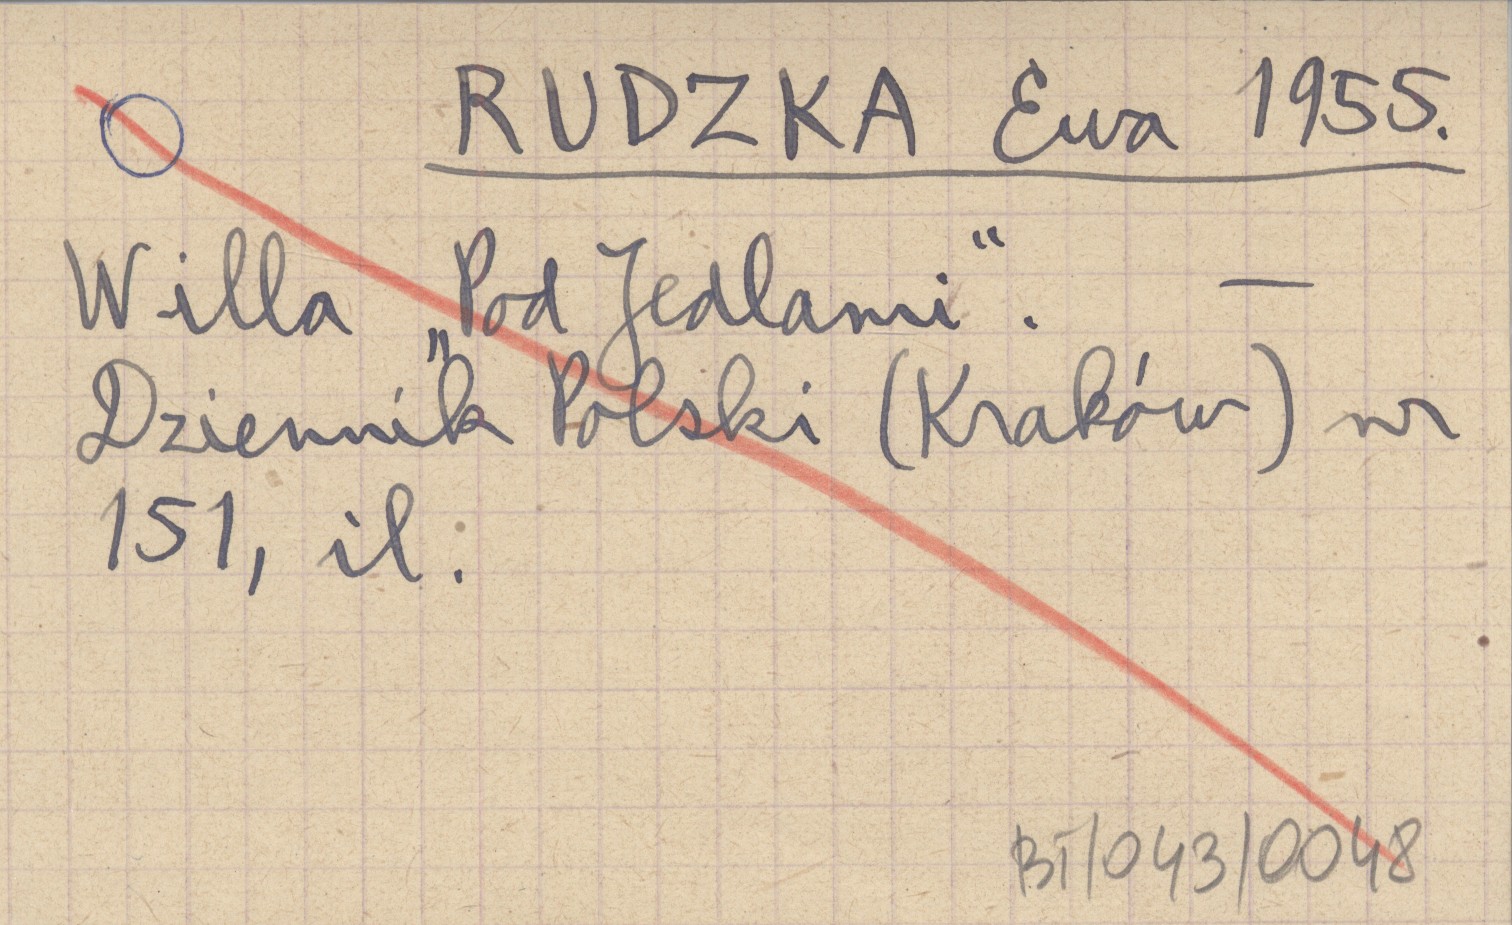 RUDZKA Ewa 1955.
Willa „Pod Jedlami“. —
Dziennik Polski (Kraków) nr
151, il.
BT/043/0048